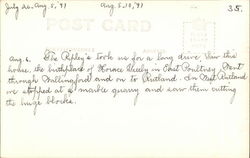 July 26-Aug. 5, '41 Aug. 5-18, '41 35.
POST CARD
Aug. 6. The Ripley's took us for a long drive. Saw this
house, the birthplace of Horace Greely in East Poultney. Went
through Wallingford and on to Rutland. In West Rutland
we stopped at a marble quarry and saw them cutting
the huge blocks.